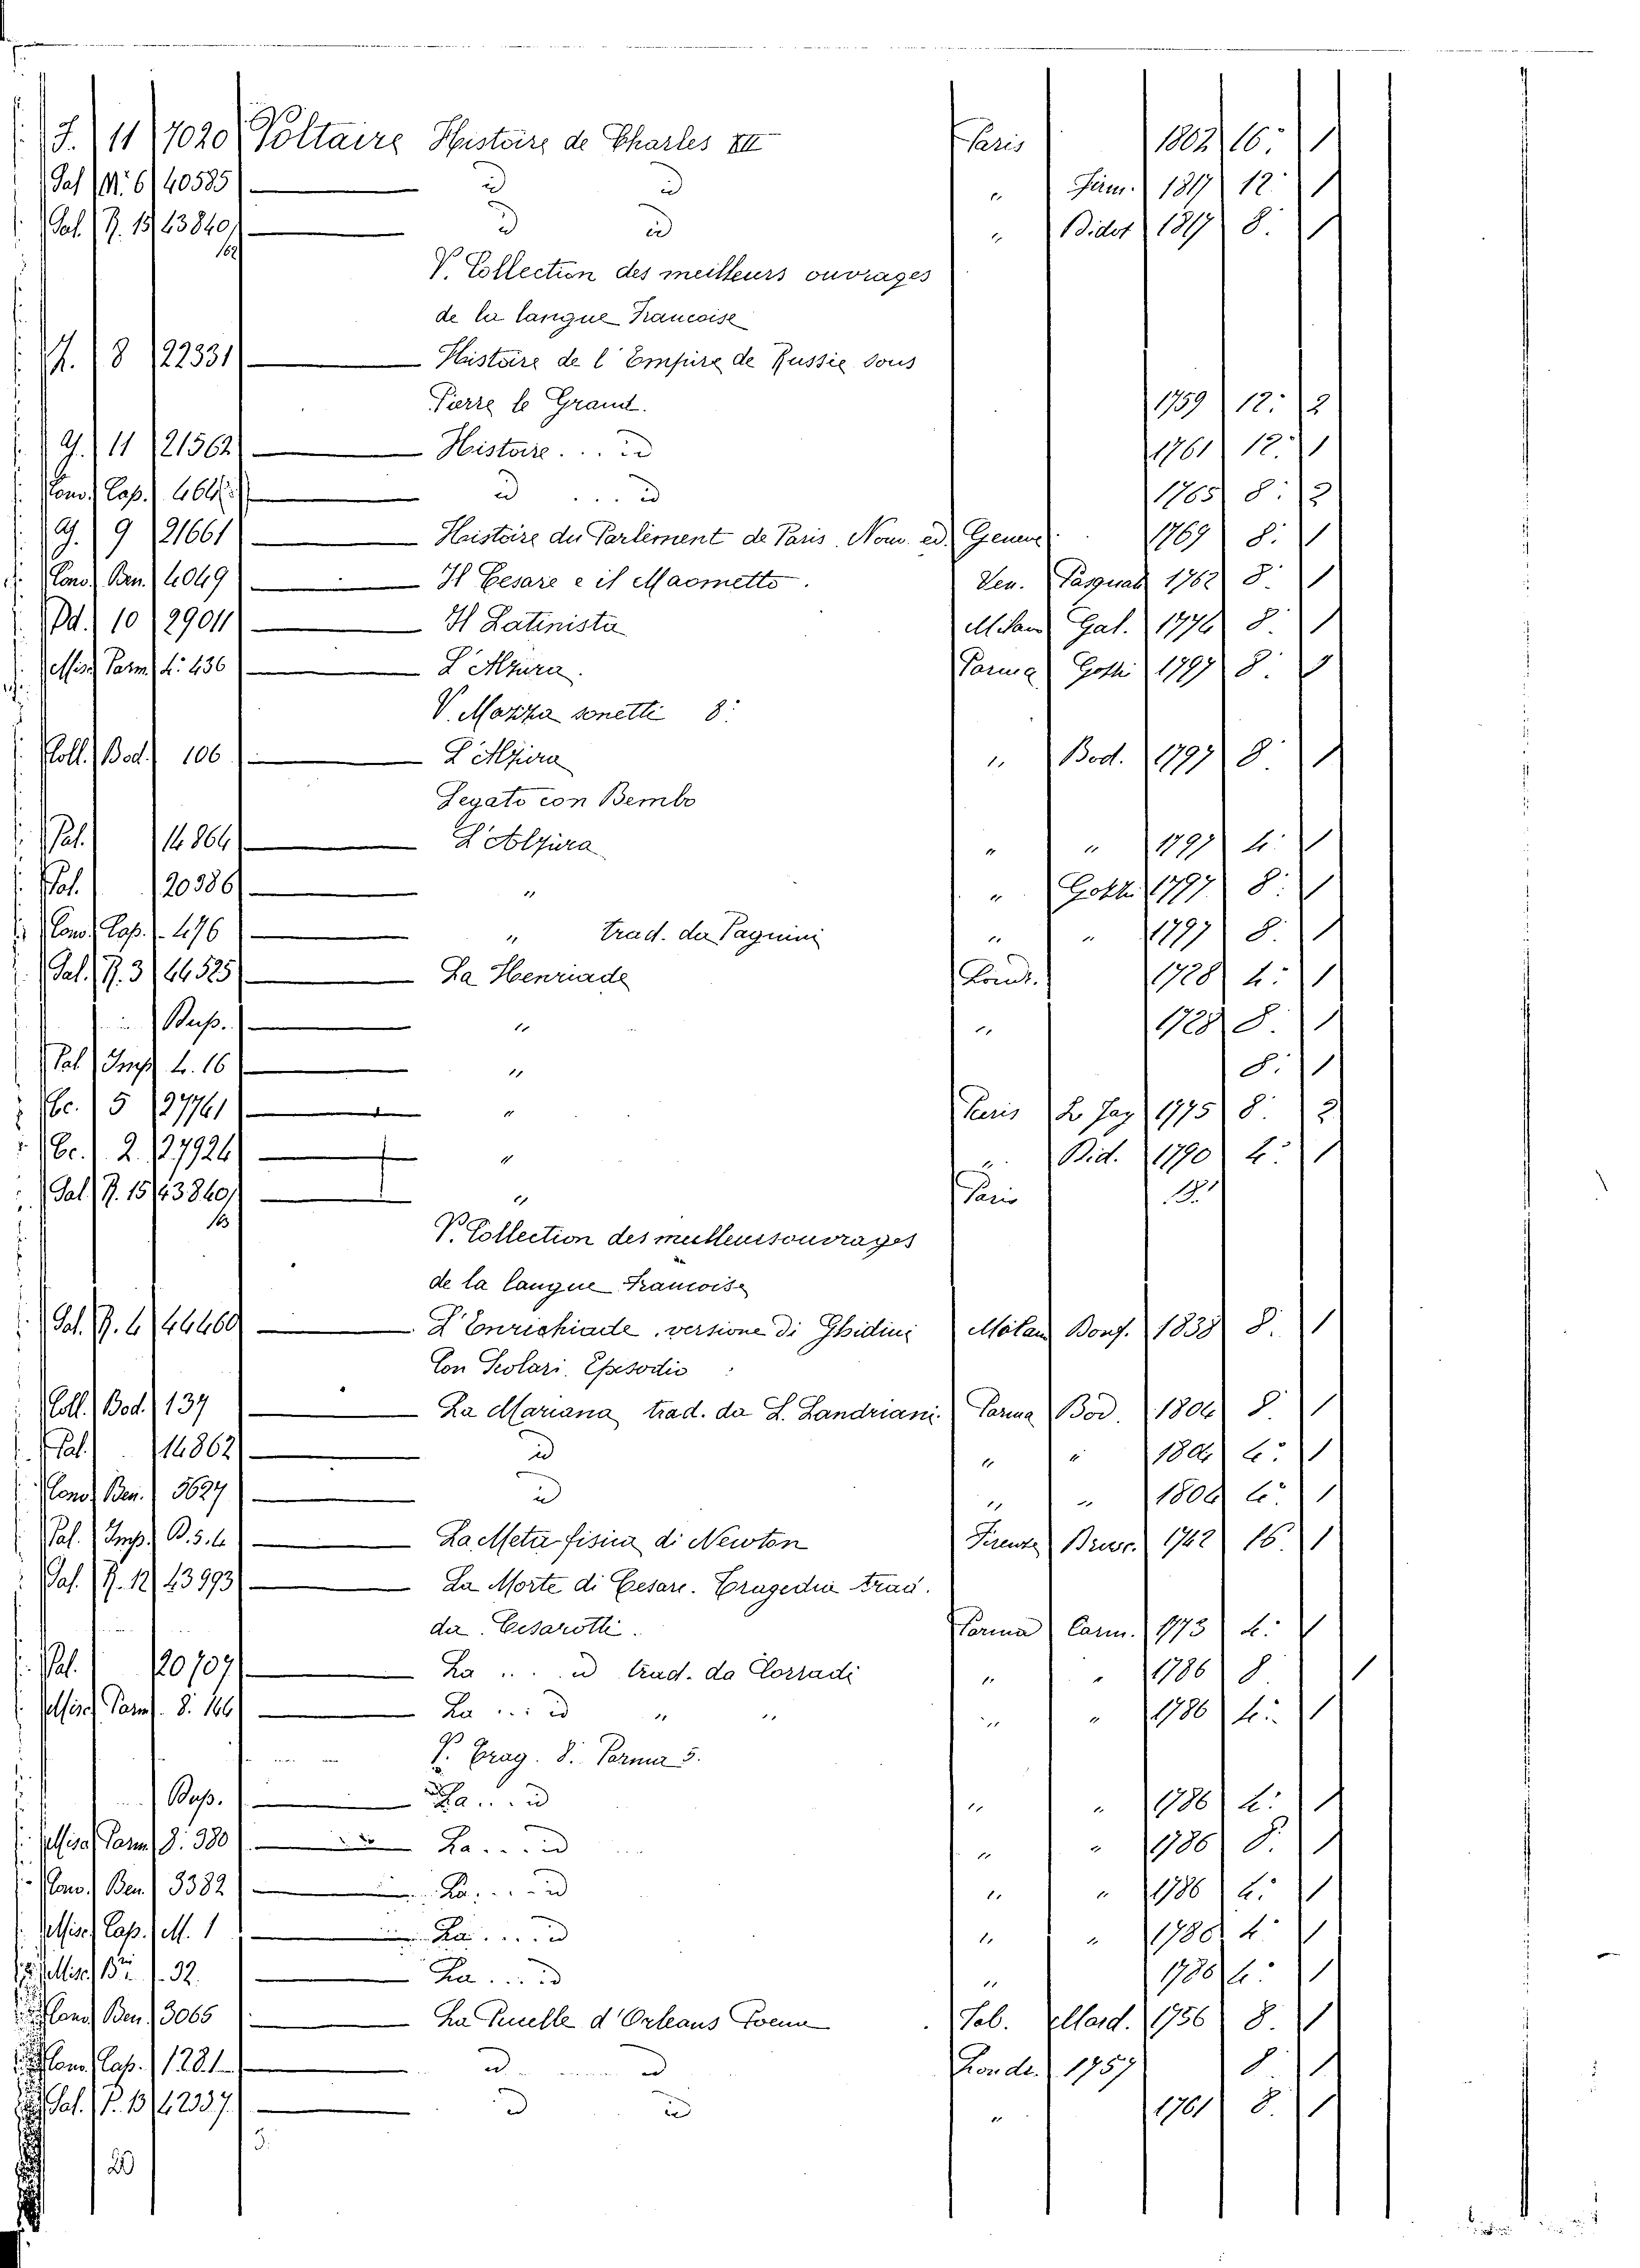 J. 11 7020 Voltaire Histoire de Charles XII Paris 1802 16: 1
Sal. N. 6 40585 — id id " Firm. 1817 12 1
Sal. R. 15 43840 — id id " Didot 1817 8. 1
162
V. Collection des meilleurs ouvrages
de la langue Francoise
H. 8 22331 — Histoire de l'Empire de Russie sous
Pierre le Grand. 1759 12: 2
G. 11 21562 — Histoire... id 1761 12. 1
Conv. Cap. 464 — id ... id 1765 8: 2
G. 9 21661 — Histoire du Parlement de Paris. Nouv. ed. Geneve 1769 8. 1
Conv. Ben. 4049 — Il Cesare e il Maometto. Ven. Pasquali 1762 8 1
Pd. 10 29011 — Il Latinista Milano Gal. 1774 8. 1
Misc. Parm. 4: 436 — L'Alzira. Parma Gotti 1797 8. 1
V. Mazza sonetti 8:
Coll. Bod. 106 — L'Alzira " Bod. 1797 8. 1
Legato con Bembo
Pal. 14864 — L'Alzira " " 1797 4: 1
Pal. 20386 — " " Gotti 1797 8: 1
Conv. Cap. 476 — " trad. da Pagnini " " 1797 8. 1
Sal. R. 3 44525 — La Henriade Londr. 1728 4: 1
Bup. — " " 1728 8. 1
Pal. Imp. 4. 16 — " 8. 1
Cc. 5 27761 — " Paris Le Jay 1775 8. 2
Cc. 2. 27924 — " " Did. 1790 4. 1
Sal. R. 15 43840 — " Paris 18.
V. Collection des meilleurs ouvrages
de la langue Francoise
Sal. R. 4 44460 — L'Enrichiade, versione di Ghidini Milano Bonf. 1838 8. 1
Con Scolari. Episodio
Coll. Bod. 137 — La Mariana trad. da L. Landriani. Parma Bod. 1804 8 1
Pal. 14862 — id " " 1804 4: 1
Conv. Ben. 5627 — id " " 1804 4: 1
Pal. Imp. B. 5. 4 — La Metafisica di Newton Firenze Brusc. 1742 16. 1
Sal. R. 12 43993 — La Morte di Cesare. Tragedia trad.
da Cesarotti. Parma Carm. 1773 4: 1
Pal. 20707 — La ... id trad. da Corradi " " 1786 8 1
Misc. Parm. 8. 146 — La ... id " " " " 1786 4: 1
V. Trag. 8. Parma 5.
Bup. — La ... id " " 1786 4: 1
Misc. Parm. 8. 380 — La ... id " " 1786 8. 1
Conv. Ben. 3382 — La ... id " " 1786 4: 1
Misc. Cap. M. 1 — La ... id " " 1786 4: 1
Misc. 32. — La ... id " 1786 4: 1
Conv. Ben. 3065 — La Pucelle d'Orleans Poema Mard. 1756 8. 1
Conv. Cap. 1281 — id id Londr. 1757 8. 1
Sal. P. 13 42337 — id id " 1761 8. 1
3.
20